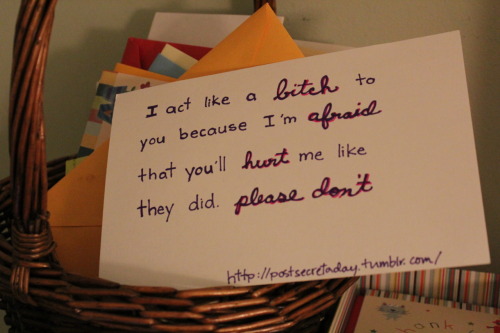 I act like a bitch to
you because I'm afraid
that you'll hurt me like
they did. please don't
http://postsecretaday.tumblr.com/